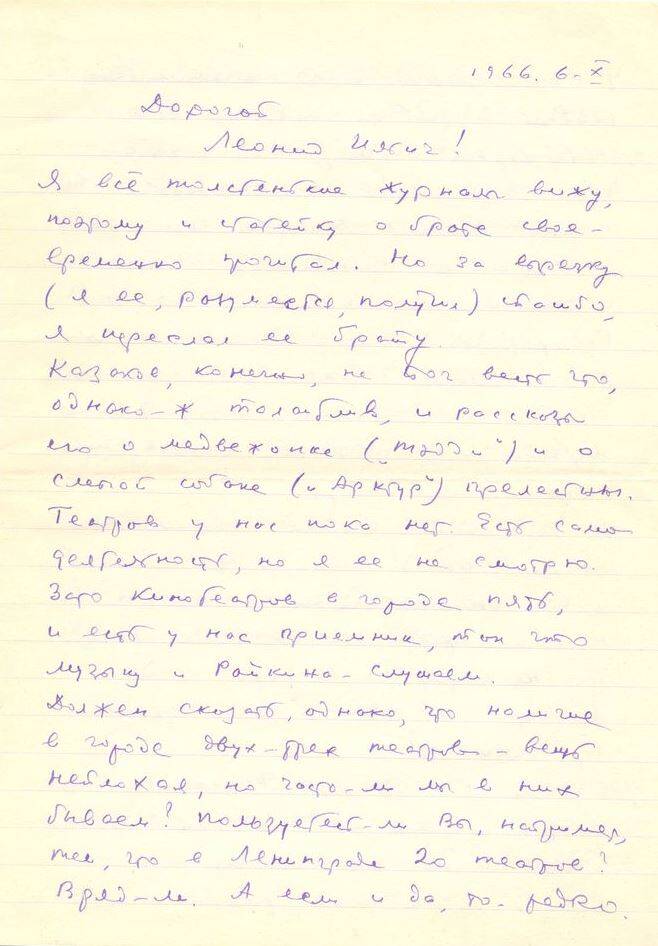 1966. 6-X
Дорогой
Леонид Ильич!
Я всё толстенькие журналы вижу,
поэтому и статейку о брате свое-
временно прочитал. Но за вырезку
(я ее, разумеется, получил) спасибо,
я переслал ее брату.
Казаков, конечно, не бог весть что,
однако-ж талантлив, и рассказы
его о медвежонке ("Тэдди") и о
слепой собаке ("Арктур") прелестны.
Театров у нас пока нет. Есть само
деятельность, но я ее не смотрю.
Зато кинотеатров в городе пять,
и есть у нас приемник, так что
музыку и Райкина - слушаем.
Должен сказать, однако, что наличие
в городе двух-трех театров - вещь
неплохая, но часто-ли мы в них
бываем? Пользуетесь-ли Вы, например,
тем, что в Ленинграде 20 театров?
Вряд-ли. А если и да, то - редко.